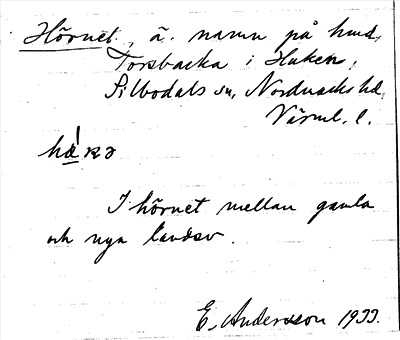 Hörnet, ä. namn på hmd.
Torsbacka i Haken,
Silbodals sn, Nordmarks hd,
Värml. l.
I hörnet mellan gamla
och nya landsv.
E. Andersson 1933.